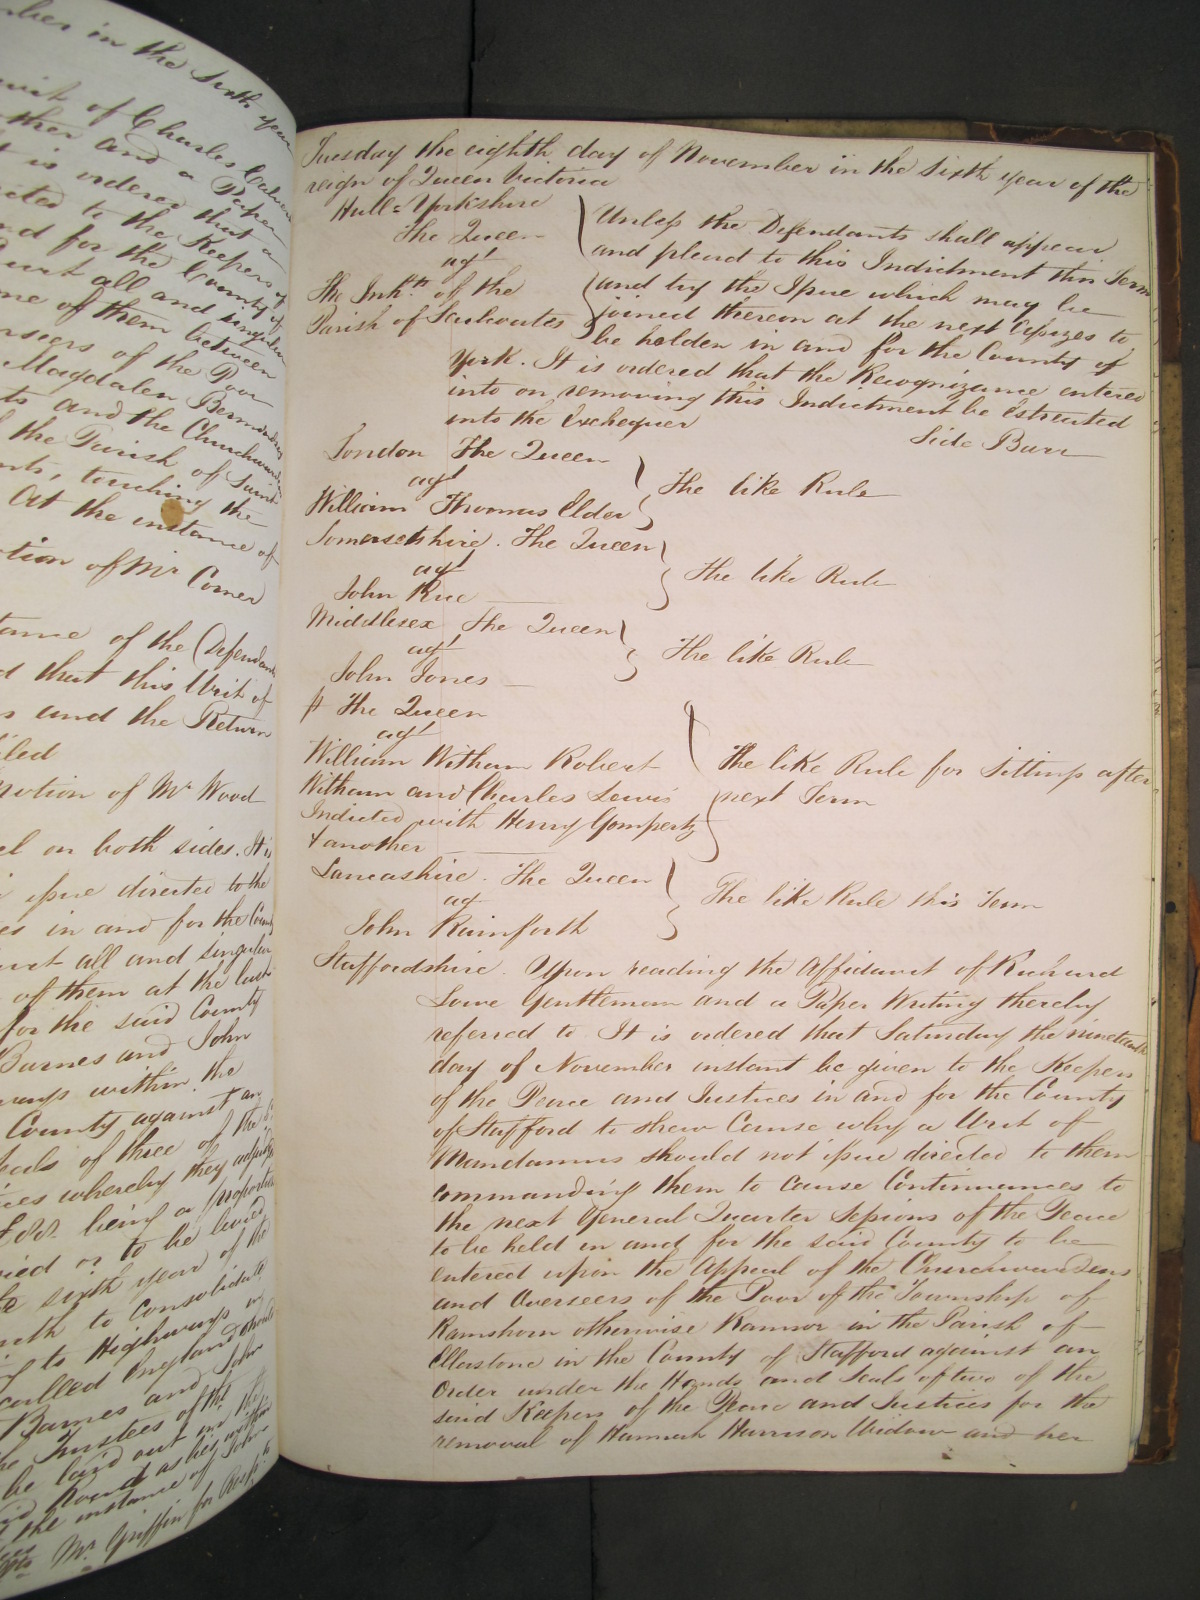 mber in the Sixth year
writ of Charles
ther and a Paper
t is ordered that a
cted to the Keepers of
nd for the County of
Court all and singular
one of them between
rseers of the Poor
Magdalen Bermondsey
ts and the Churchwardens
the Parish of Saint
nts, touching the
At the instance of
otion of Mr Corner
tance of the Defendants
d that this Writ of
s and the Return
iled
motion of Mr Wood
el on both sides. It is
ipue directed to the
es in and for the County
Court all and singular
of them at the last
for the said County
Barnes and John
within the
County against an
Seals of three of the
ces whereby they
being a proportion
ried or to be levied
sixth year of the
to Consolidate
to Highways in
called England should
Barnes and John
Trustees of the
be laid out in the
Road as lies within
the instance of John
Mr Griffin for
Tuesday the eighth day of November in the Sixth year of the
reign of Queen Victoria
Hull = Yorkshire
The Queen
agt
The Inhts of the
Parish of Sculcoates
Unless the Defendants shall appear
and plead to this Indictment this Term
and try the Issue which may be
joined thereon at the next Assizes to
be holden in and for the County of
York. It is ordered that the Recognizance entered
into on removing this Indictment be Estreated
into the Exchequer
Side Barr
London The Queen
agt
William Thomas Elder
The like Rule
Somersetshire. The Queen
agt
John Rice
The like Rule
Middlesex The Queen
agt
John Jones
The like Rule
The Queen
agt
William Witham Robert
Witham and Charles Lewis
Indicted with Henry Gompertz
& another
The like Rule for Sittings after
next Term
Lancashire. The Queen
ag
John Rainforth
The like Rule this Term
Staffordshire. Upon reading the Affidavit of Richard
Lowe Gentleman and a Paper Writing thereby
referred to It is ordered that Saturday the nineteenth
day of November instant be given to the Keepers
of the Peace and Justices in and for the County
of Stafford to shew Cause why a Writ of
Mandamus should not issue directed to them
commanding them to cause Continuances to
the next General Quarter Sessions of the Peace
to be held in and for the said County to be
entered upon the Appeal of the Churchwardens
and Overseers of the Poor of the Township of
Ramshorn otherwise Ramsor in the Parish of
Ellastone in the County of Stafford against an
Order under the Hands and Seals of two of the
said Keepers of the Peace and Justices for the
removal of Hannah Harrison Widow and her